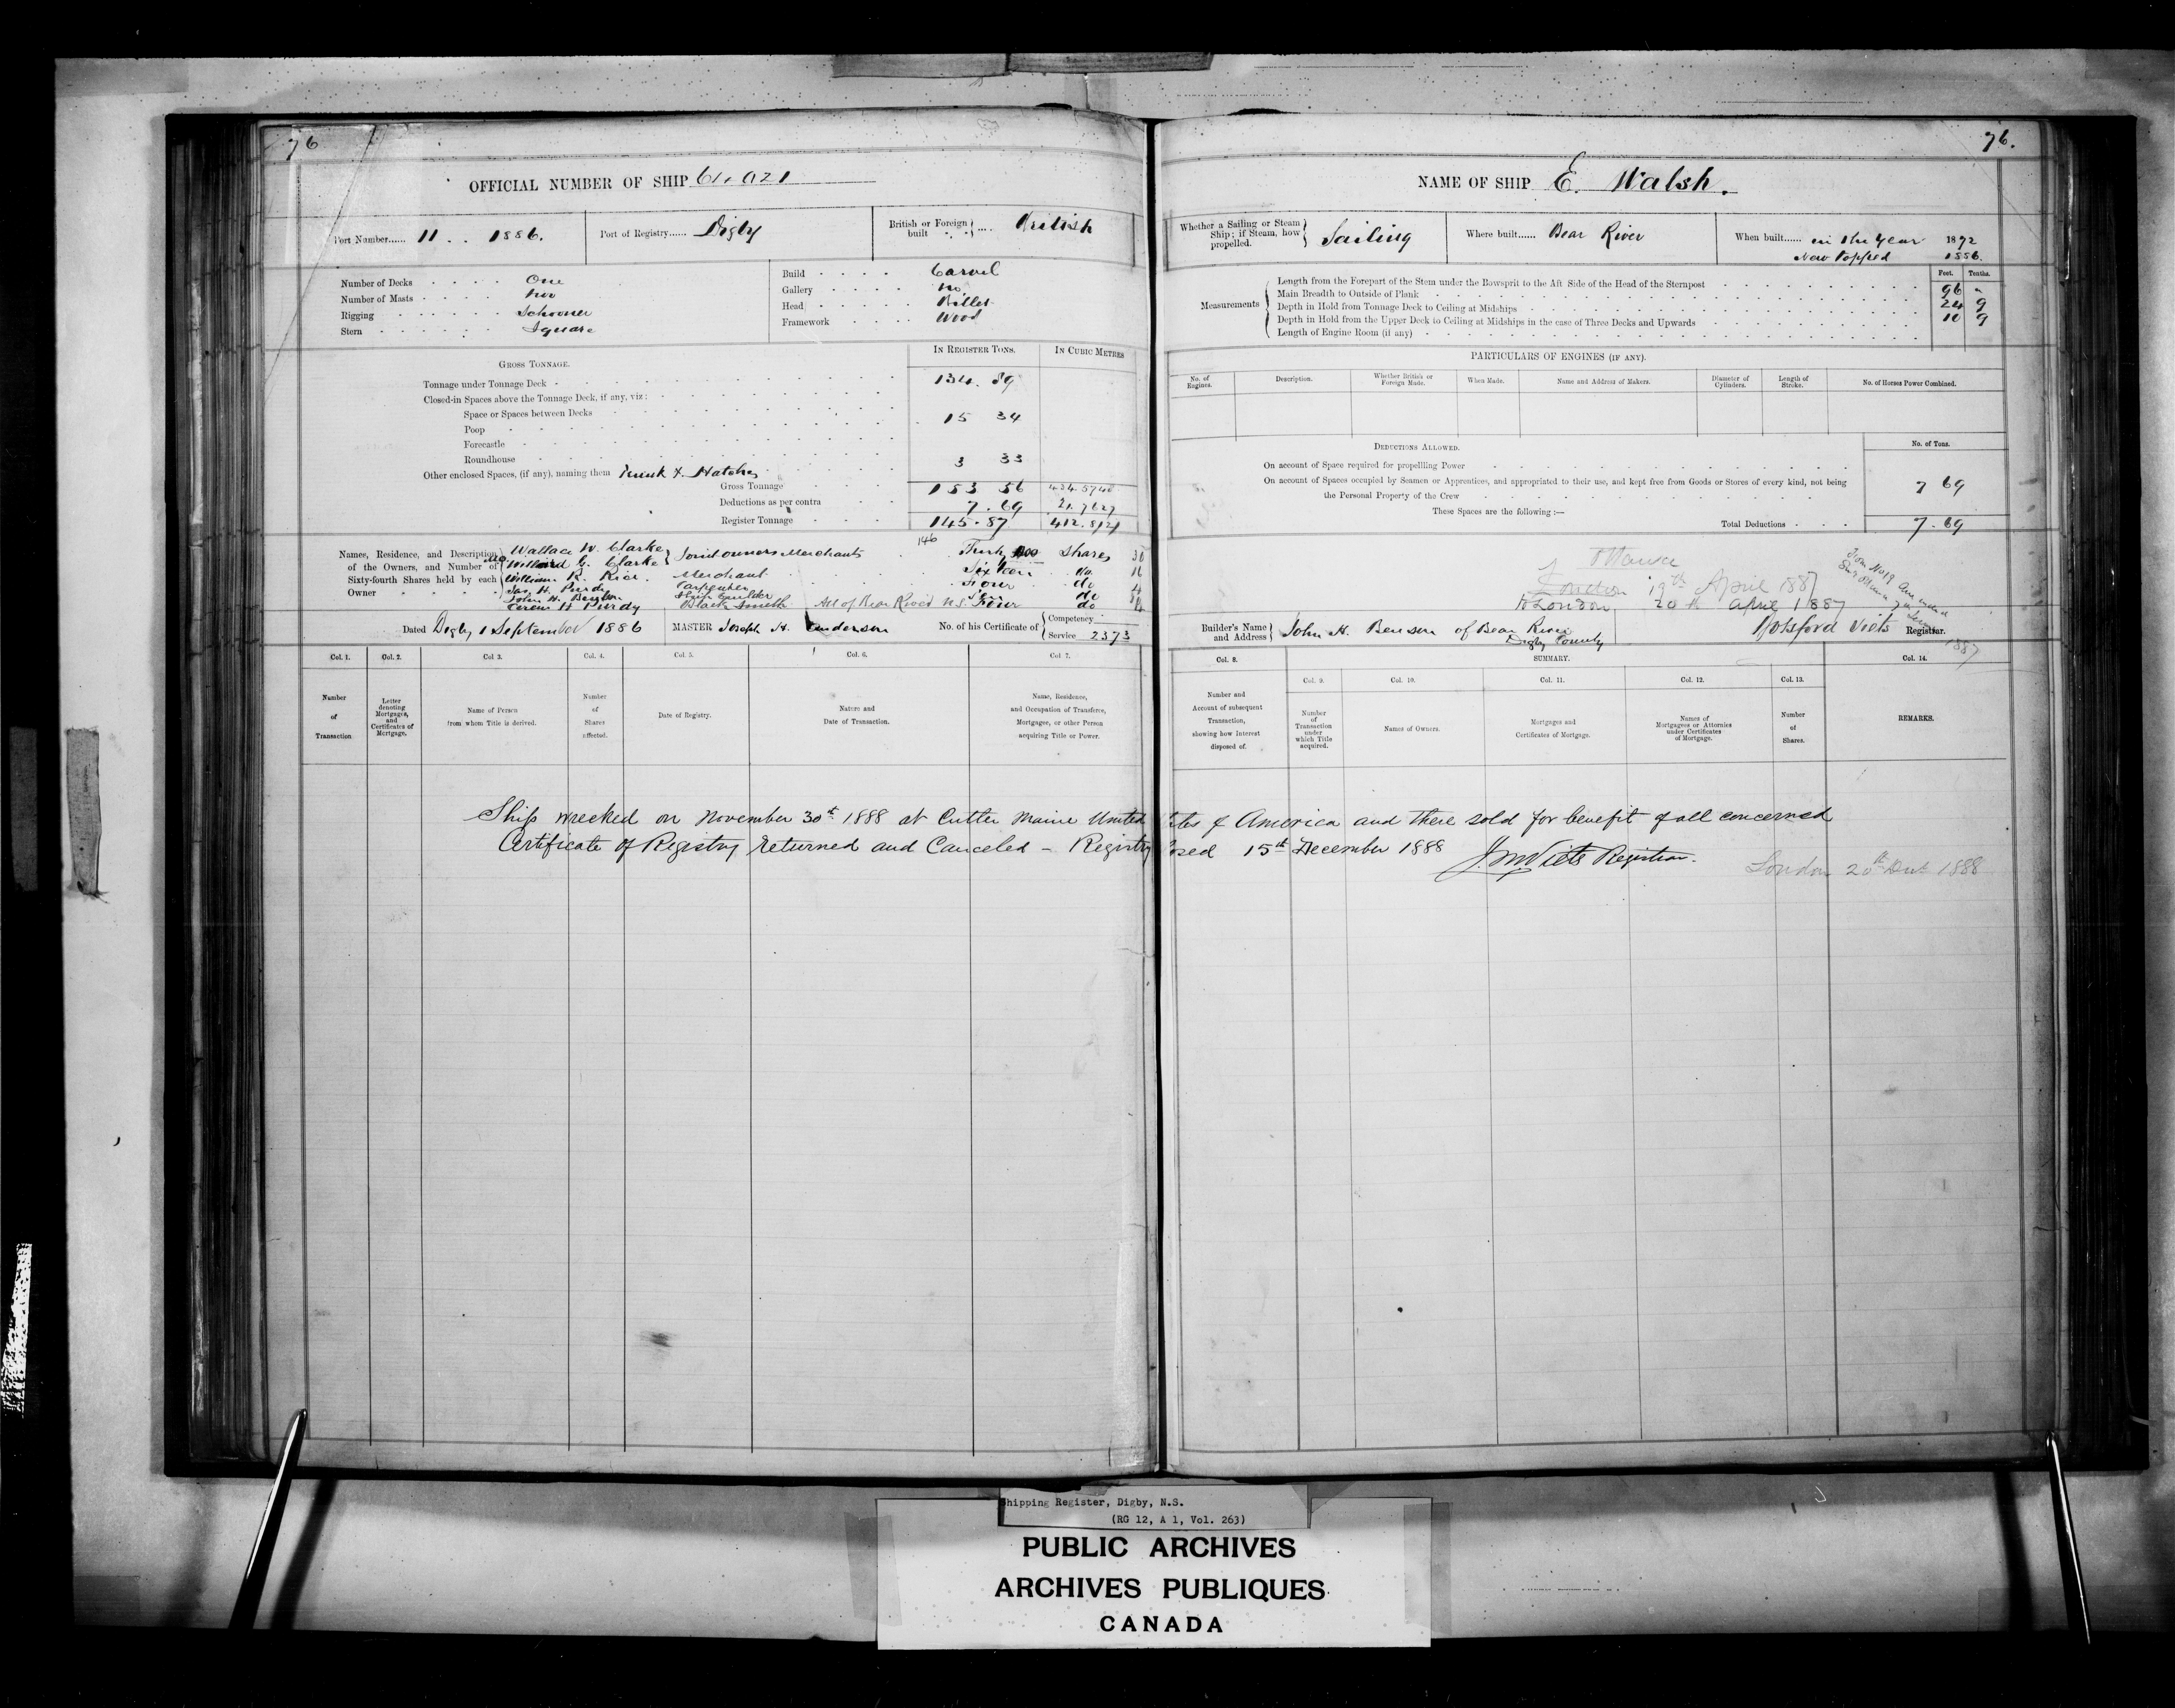 76
OFFICIAL NUMBER OF SHIP 61.921
Port Number...... 11 . . 1886.
Port of Registry...... Digby
British or Foreign built .... British
Number of Decks . . . . One
Number of Masts . . . . Two
Rigging . . . . Schooner
Stern . . . . Square
Build . . . . Carvel
Gallery . . . . no
Head . . . . Billet
Framework . . . . Wood
IN REGISTER TONS. IN CUBIC METRES
GROSS TONNAGE.
Tonnage under Tonnage Deck 134. 89
Closed-in Spaces above the Tonnage Deck, if any, viz:
Space or Spaces between Decks
Poop 15 34
Forecastle
Roundhouse
Other enclosed Spaces, (if any), naming them Trunk & Hatches 3 33
Gross Tonnage 153 56 434.5740
Deductions as per contra 7. 69 21.7627
Register Tonnage 145.87 412.8121
146
Names, Residence, and Description of the Owners, and Number of Sixty-fourth Shares held by each Owner
Wallace W. Clarke
Willard G. Clarke Joint owners Merchants Shares 30
William R. Rice. Merchant Sixteen do 16
Jas. H. Purdy Carpenter Four do 4
John H. Benson Ship builder Ten do
H Purdy Black Smith All of Bear River N.S. Four do 4
Dated Digby 1 September 1886 MASTER Joseph H. Anderson No. of his Certificate of Competency
Service 2373
Col. 1. Col. 2. Col 3. Col. 4. Col. 5. Col. 6. Col 7.
Number of Transaction
Letter denoting Mortgages, and Certificates of Mortgage.
Name of Person from whom Title is derived.
Number of Shares affected.
Date of Registry.
Nature and Date of Transaction.
Name, Residence, and Occupation of Transferee, Mortgagee, or other Person acquiring Title or Power.
76.
NAME OF SHIP E. Walsh.
Whether a Sailing or Steam Ship; if Steam, how propelled. Sailing
Where built...... Bear River
When built...... in the Year 1872
New Topped 1886.
Feet. Tenths.
Measurements
Length from the Forepart of the Stem under the Bowsprit to the Aft Side of the Head of the Sternpost 96 -
Main Breadth to Outside of Plank 24 9
Depth in Hold from Tonnage Deck to Ceiling at Midships 10 9
Depth in Hold from the Upper Deck to Ceiling at Midships in the case of Three Decks and Upwards
Length of Engine Room (if any)
PARTICULARS OF ENGINES (IF ANY).
No. of Engines. Description. Whether British or Foreign Made. When Made. Name and Address of Makers. Diameter of Cylinders. Length of Stroke. No. of Horses Power Combined.
DEDUCTIONS ALLOWED. No. of Tons.
On account of Space required for propellling Power
On account of Spaces occupied by Seamen or Apprentices, and appropriated to their use, and kept free from Goods or Stores of every kind, not being
the Personal Property of the Crew 7 69
These Spaces are the following :—
Total Deductions 7.69
Ottawa
London 19th April 1887
to London 20th April 1887
Builder's Name and Address John H. Benson of Bear River
Digby County
Botsford Viets Registrar.
1887
Col. 8. SUMMARY. Col. 14.
Col. 9. Col. 10. Col. 11. Col. 12. Col. 13.
Number and Account of subsequent Transaction, showing how Interest disposed of.
Number of Transaction under which Title acquired.
Names of Owners.
Mortgages and Certificates of Mortgage.
Names of Mortgagees or Attornies under Certificates of Mortgage.
Number of Shares.
REMARKS.
Ship wrecked on November 30th 1888 at Cutter Maine United tes of America and there sold for benefit of all concerned
Certificate of Registry returned and Canceled - Registry osed 15th December 1888 J. M Viets Registrar.
London 20th Dec 1888
hipping Register, Digby, N.S.
(RG 12, A 1, Vol. 263)
PUBLIC ARCHIVES
ARCHIVES PUBLIQUES
CANADA